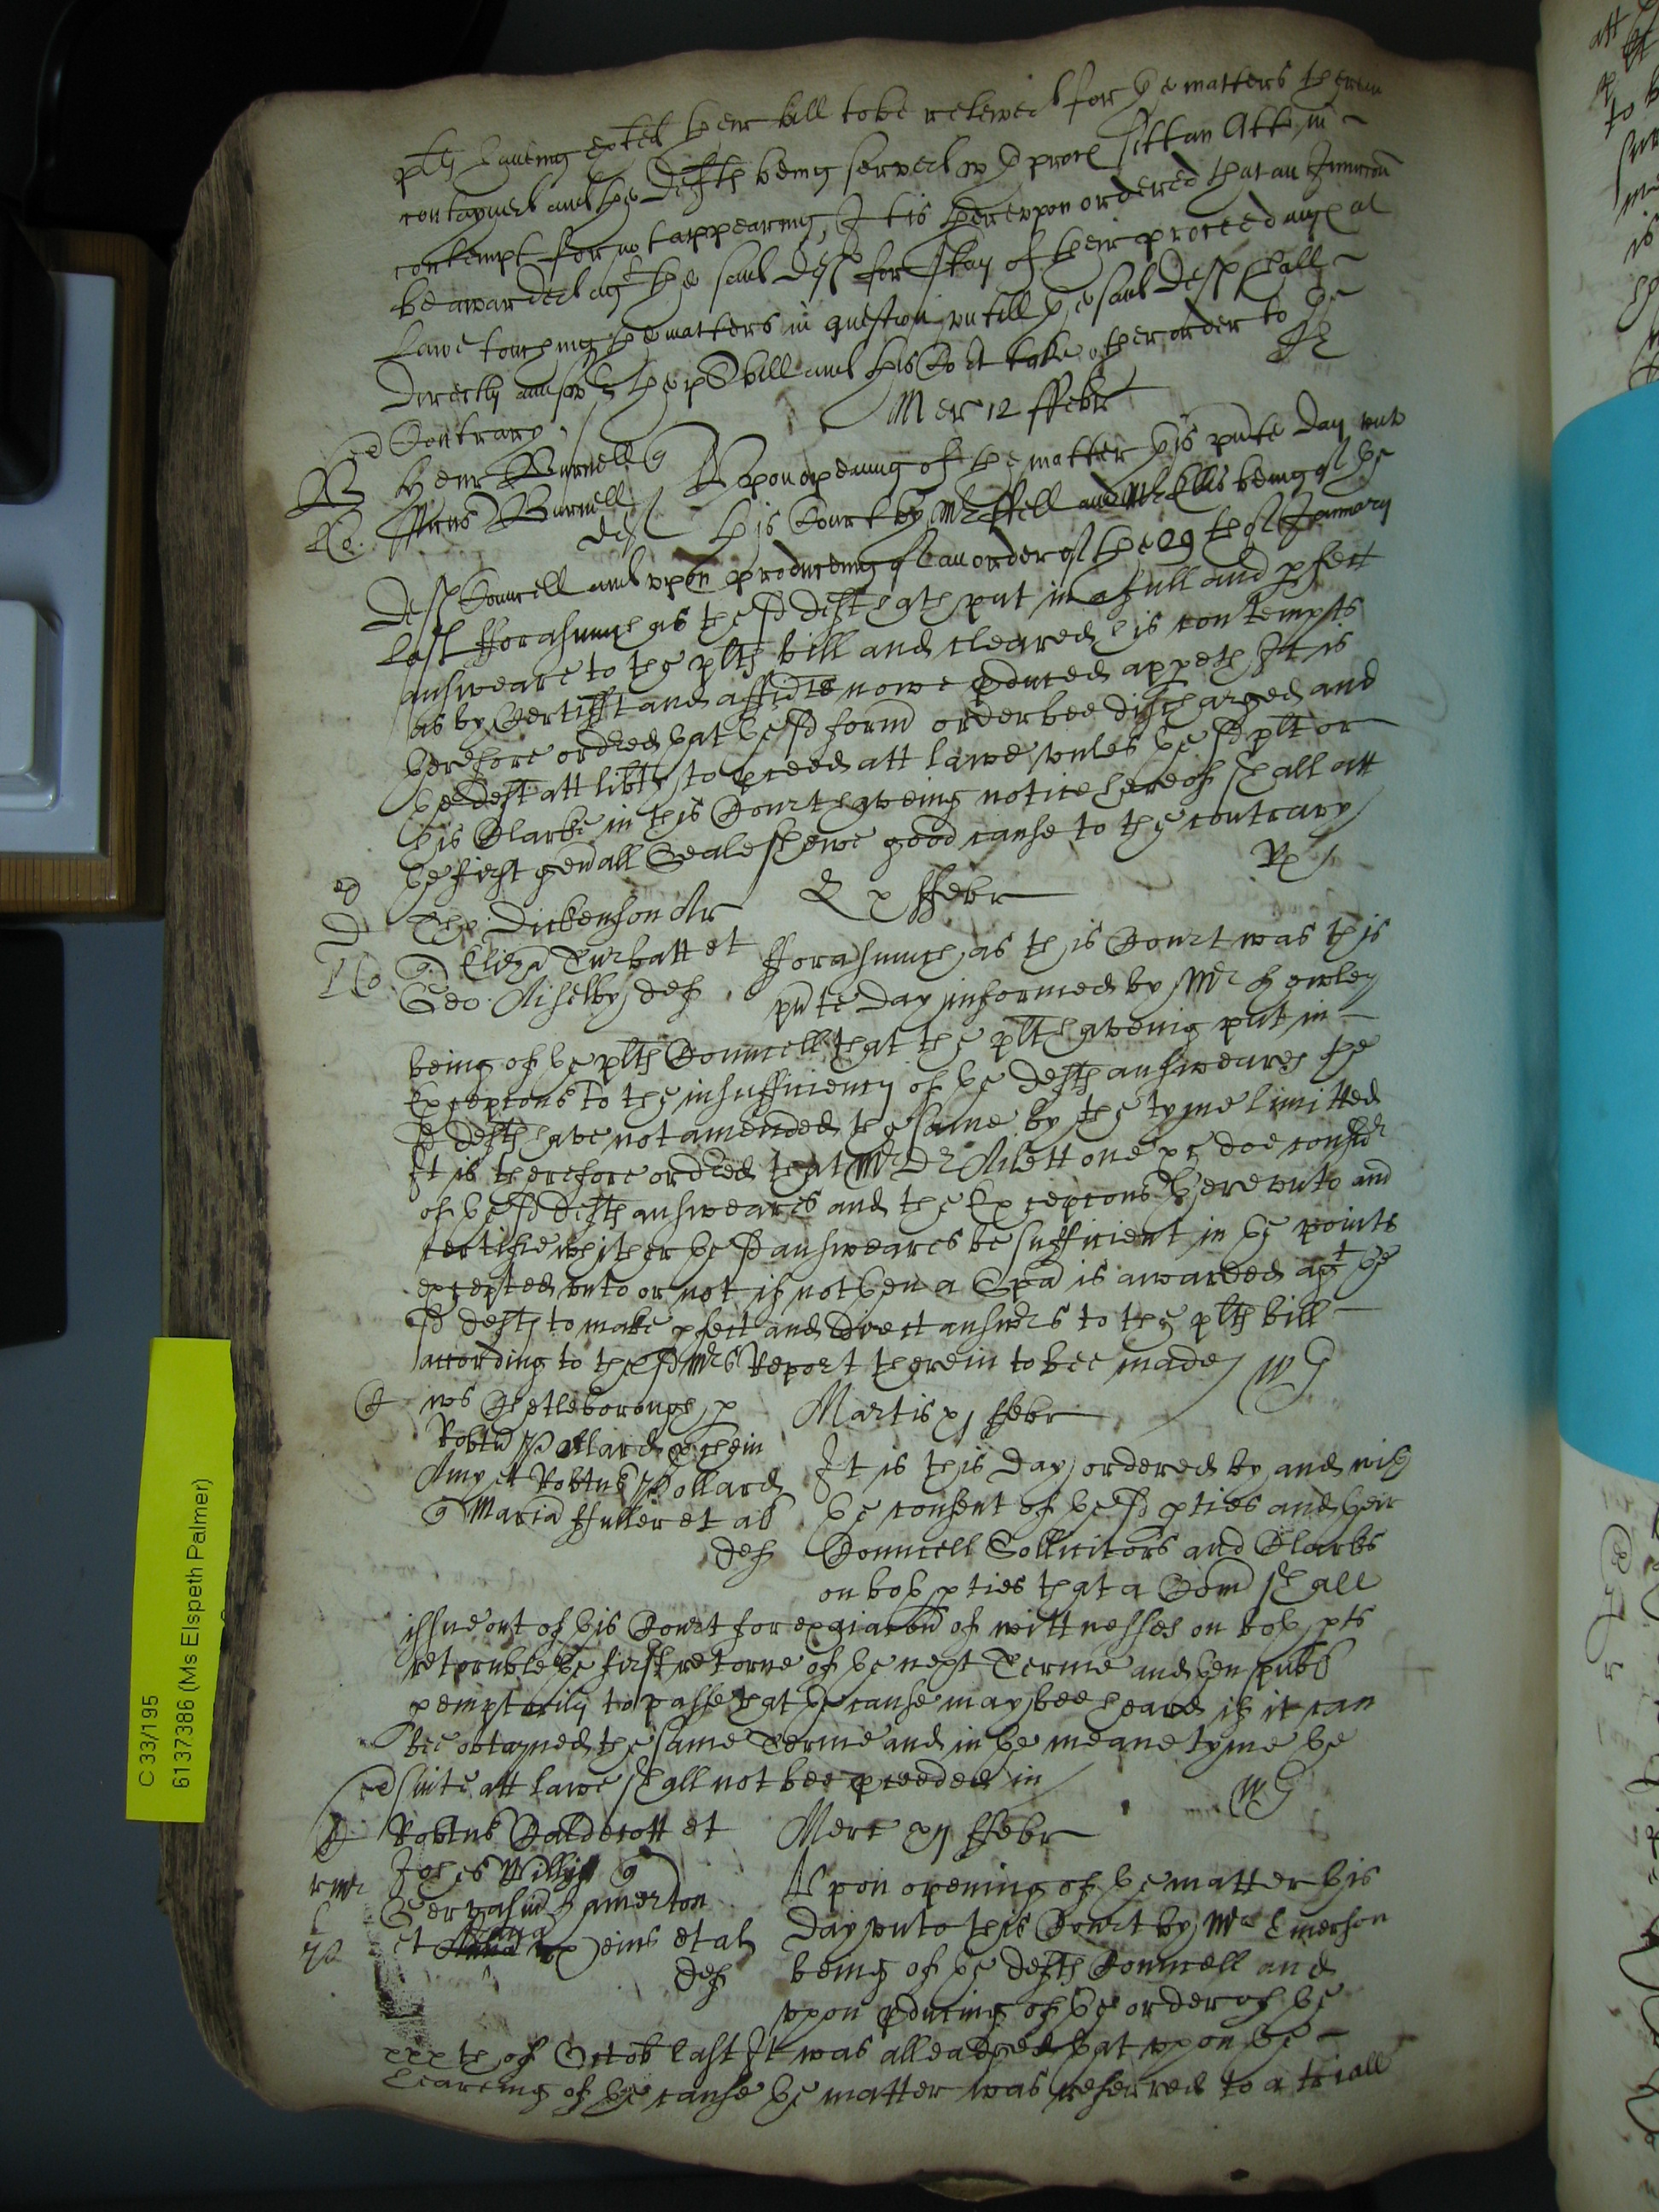 plts haueing exhted their bill to be releived for the matters therein
contayned and the Defts being served wth proces sitt an Attt in
contempt for not appearing, It is therevpon ordered that an Iniunccon
be awarded agt the said Defts for stay of their proceedings at
Lawe touching the matters in question vntill the said Defts shall
Directly answer the pltes bill and this Court take other order to the
Contrary
Mer 12 ffebr
Henr Burnell q
ffrns Burnell
def
Vpon opening of the matter this pnte Day vnto
this Court by Mr ffell and Mr Ellis being of the
Defts Councell and vpon produceing of an order of the 29th of January
last fforasmuch as the sd deft hath put in a full and pfect
answeare to the plts bill and cleared his contempts
as by Certifft and affidts nowe pduced appeth It is
therefore ordred that the sd form order bee discharged and
the deft att libty to pceed att lawe vnles the sd plt or
his Clarke in this Court haveing notice hereof shall att
the first genall Seale shewe good cause to the contrary
Rp
Tho: Dickenson Ar
q Eliza Turbatt et
Geo: Aiselby def
ffebr
fforasmuch as this Court was this
pnte day informed by Mr Howley
being of the plts Councell that the plt haveing put in
Excepcons to the insufficiency of the defts answeares the
sd defts have not amended the same by the tyme limitted
It is therefore ordred that Mr Dr Ailett one &c doe consider
of the sd defts answeares and the Excepcons therevnto and
certifie whither the sd answeares be sufficient in the points
excepted vnto or not if not then a Spa is awarded agt the
sd defts to make pfect and direct answers to the plts bill
according to the sd Mrs Report therein to bee made WG
Ws Thetleborough p
Robtu Pollard
Amy et Robtus Pollard
q Maria ffuller et al
def
Martis xj ffebr
It is this day ordered by and with
the consent of the sd pties and their
Councell Sollicitors and Clarks
on both pties that a Com shall
issue out of this Court for exaiacon of wittnesses on both pts
retornble the first retorne of the next Terme and then publ
pemptorily to passe that the cause may bee heard if it can
bee obtayned the same Terme and in the meane tyme the
suite att lawe shall not bee pceeded in
WG
Robtus Caldecott et
Johes Willys q
Gervasiu Hamerton
et Anna vx eius et al
def
Merc xij ffebr
Vpon opening of the matter this
day vnto this Court by Mr Emerson
being of the defts Councell and
vpon pducing of the order of the
xxxth of Octob last It was alleadged that vpon the
heareing of the cause the matter was referred to a triall
C 33/195
6137386 (Ms Elspeth Palmer)